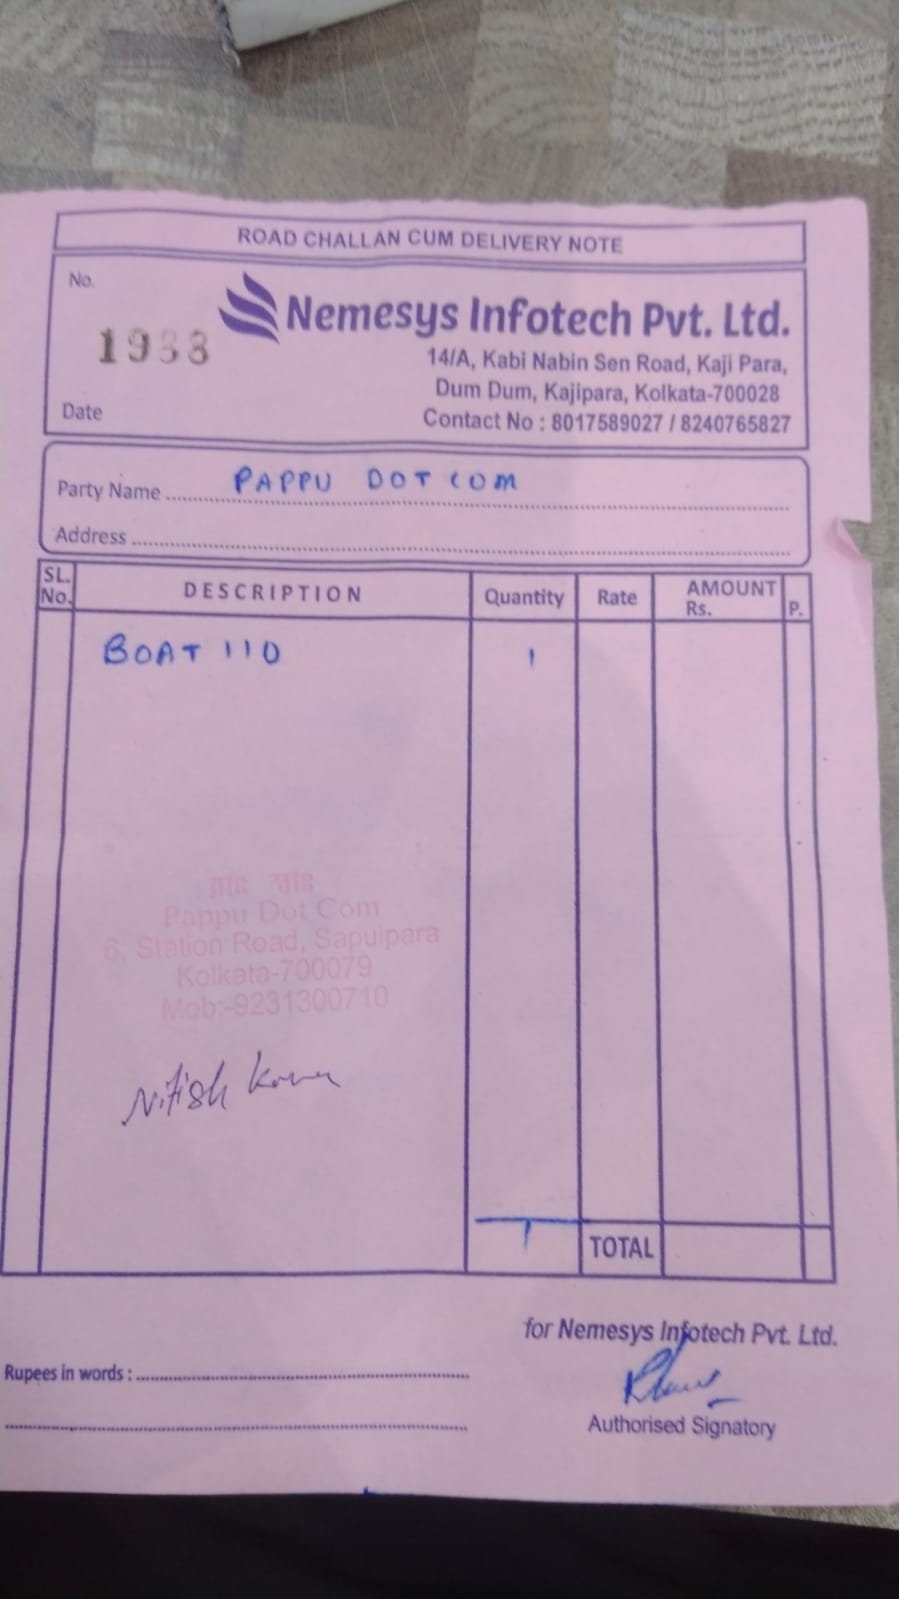 ROAD CHALLAN CUM DELIVERY NOTE
No.
Nemesys Infotech Pvt. Ltd.
14/A, Kabi Nabin Sen Road, Kaji Para,
Dum Dum, Kajipara, Kolkata-700028
Date
Contact No : 8017589027 / 8240765827
Party Name PAPPU DOT COM
Address
SL. No. DESCRIPTION Quantity Rate AMOUNT Rs. P.
BOAT 110 1
Pappu Dot Com
6, Station Road, Sapuipara
Kolkata-700079
Mob:-9231300710
Nitish
1 TOTAL
for Nemesys Infotech Pvt. Ltd.
Rupees in words :
Authorised Signatory